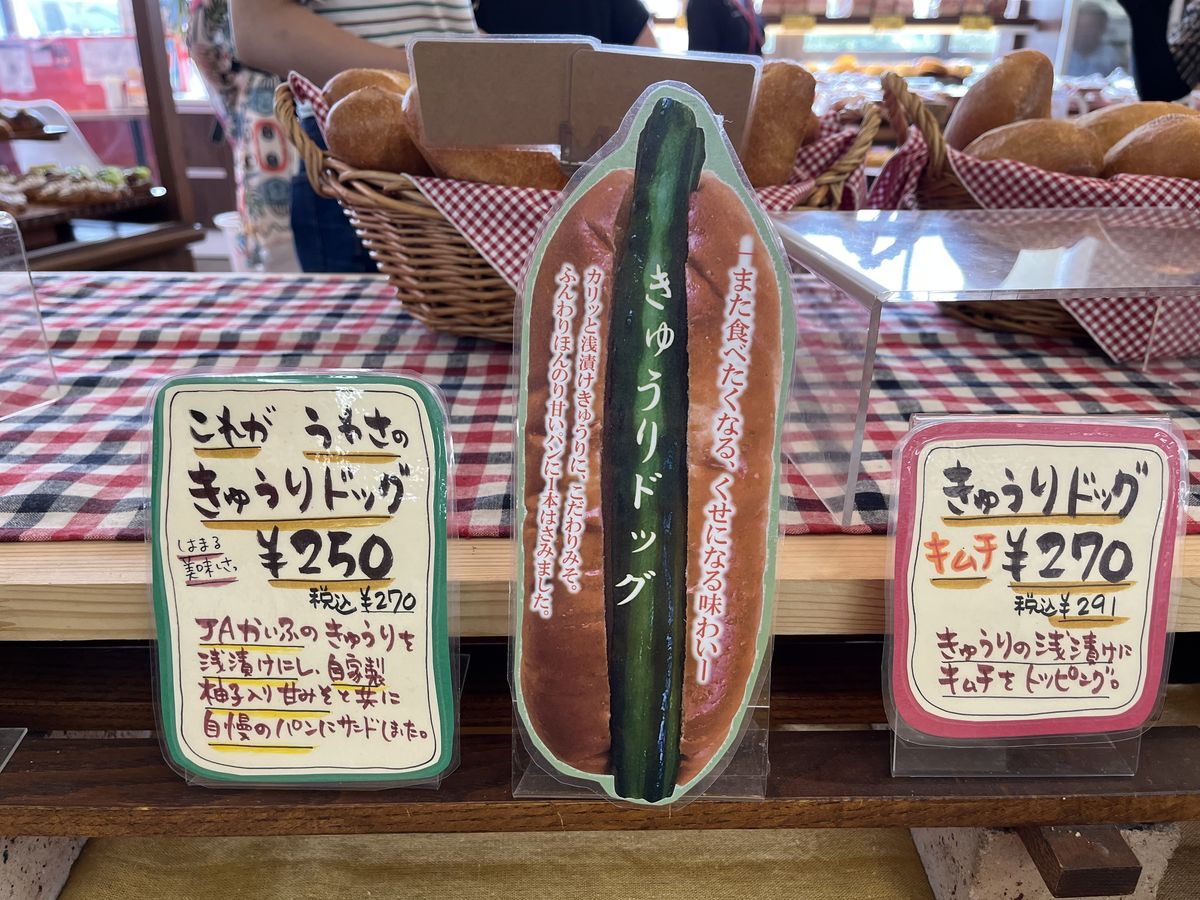 これが うわさの
きゅうりドッグ
はまる
美味しさ。
¥250
税込¥270
JAかいふのきゅうりを
浅漬けにし、自家製
柚子入り甘みそと共に
自慢のパンにサンドしました。
―また食べたくなる、くせになる味わい―
きゅうりドッグ
カリッと浅漬けきゅうりに、こだわりみそ。
ふんわりほんのり甘いパンに1本はさみました。
きゅうりドッグ
キムチ ¥270
税込¥291
きゅうりの浅漬けに
キムチをトッピング。